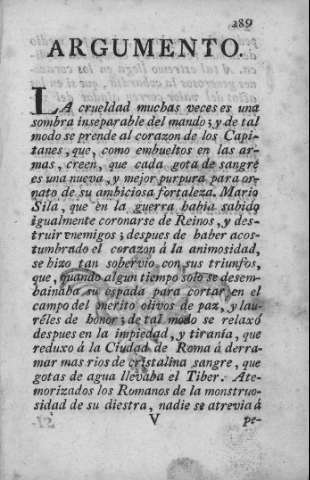 289
ARGUMENTO.
LA crueldad muchas veces es una
sombra inseparable del mando; y de tal
modo se prende al corazon de los Capi-
tanes, que, como embueltos en las ar-
mas, creen, que cada gota de sangre
es una nueva, y mejor purpura para or-
nato de su ambiciosa fortaleza. Mario
Sila, que en la guerra habia sabido
igualmente coronarse de Reinos, y des-
truir enemigos; despues de haber acos-
tumbrado el corazon á la animosidad,
se hizo tan sobervio con sus triunfos,
que, quando algun tiempo solo se desem-
bainaba su espada para cortar en el
campo del merito olivos de paz, y lau-
réles de honor; de tal modo se relaxó
despues en la impiedad, y tiranía, que
reduxo á la Ciudad de Roma á derra-
mar mas rios de cristalina sangre, que
gotas de agua llevaba el Tiber. Ate-
morizados los Romanos de la monstruo-
sidad de su diestra, nadie se atrevia á
V pe-